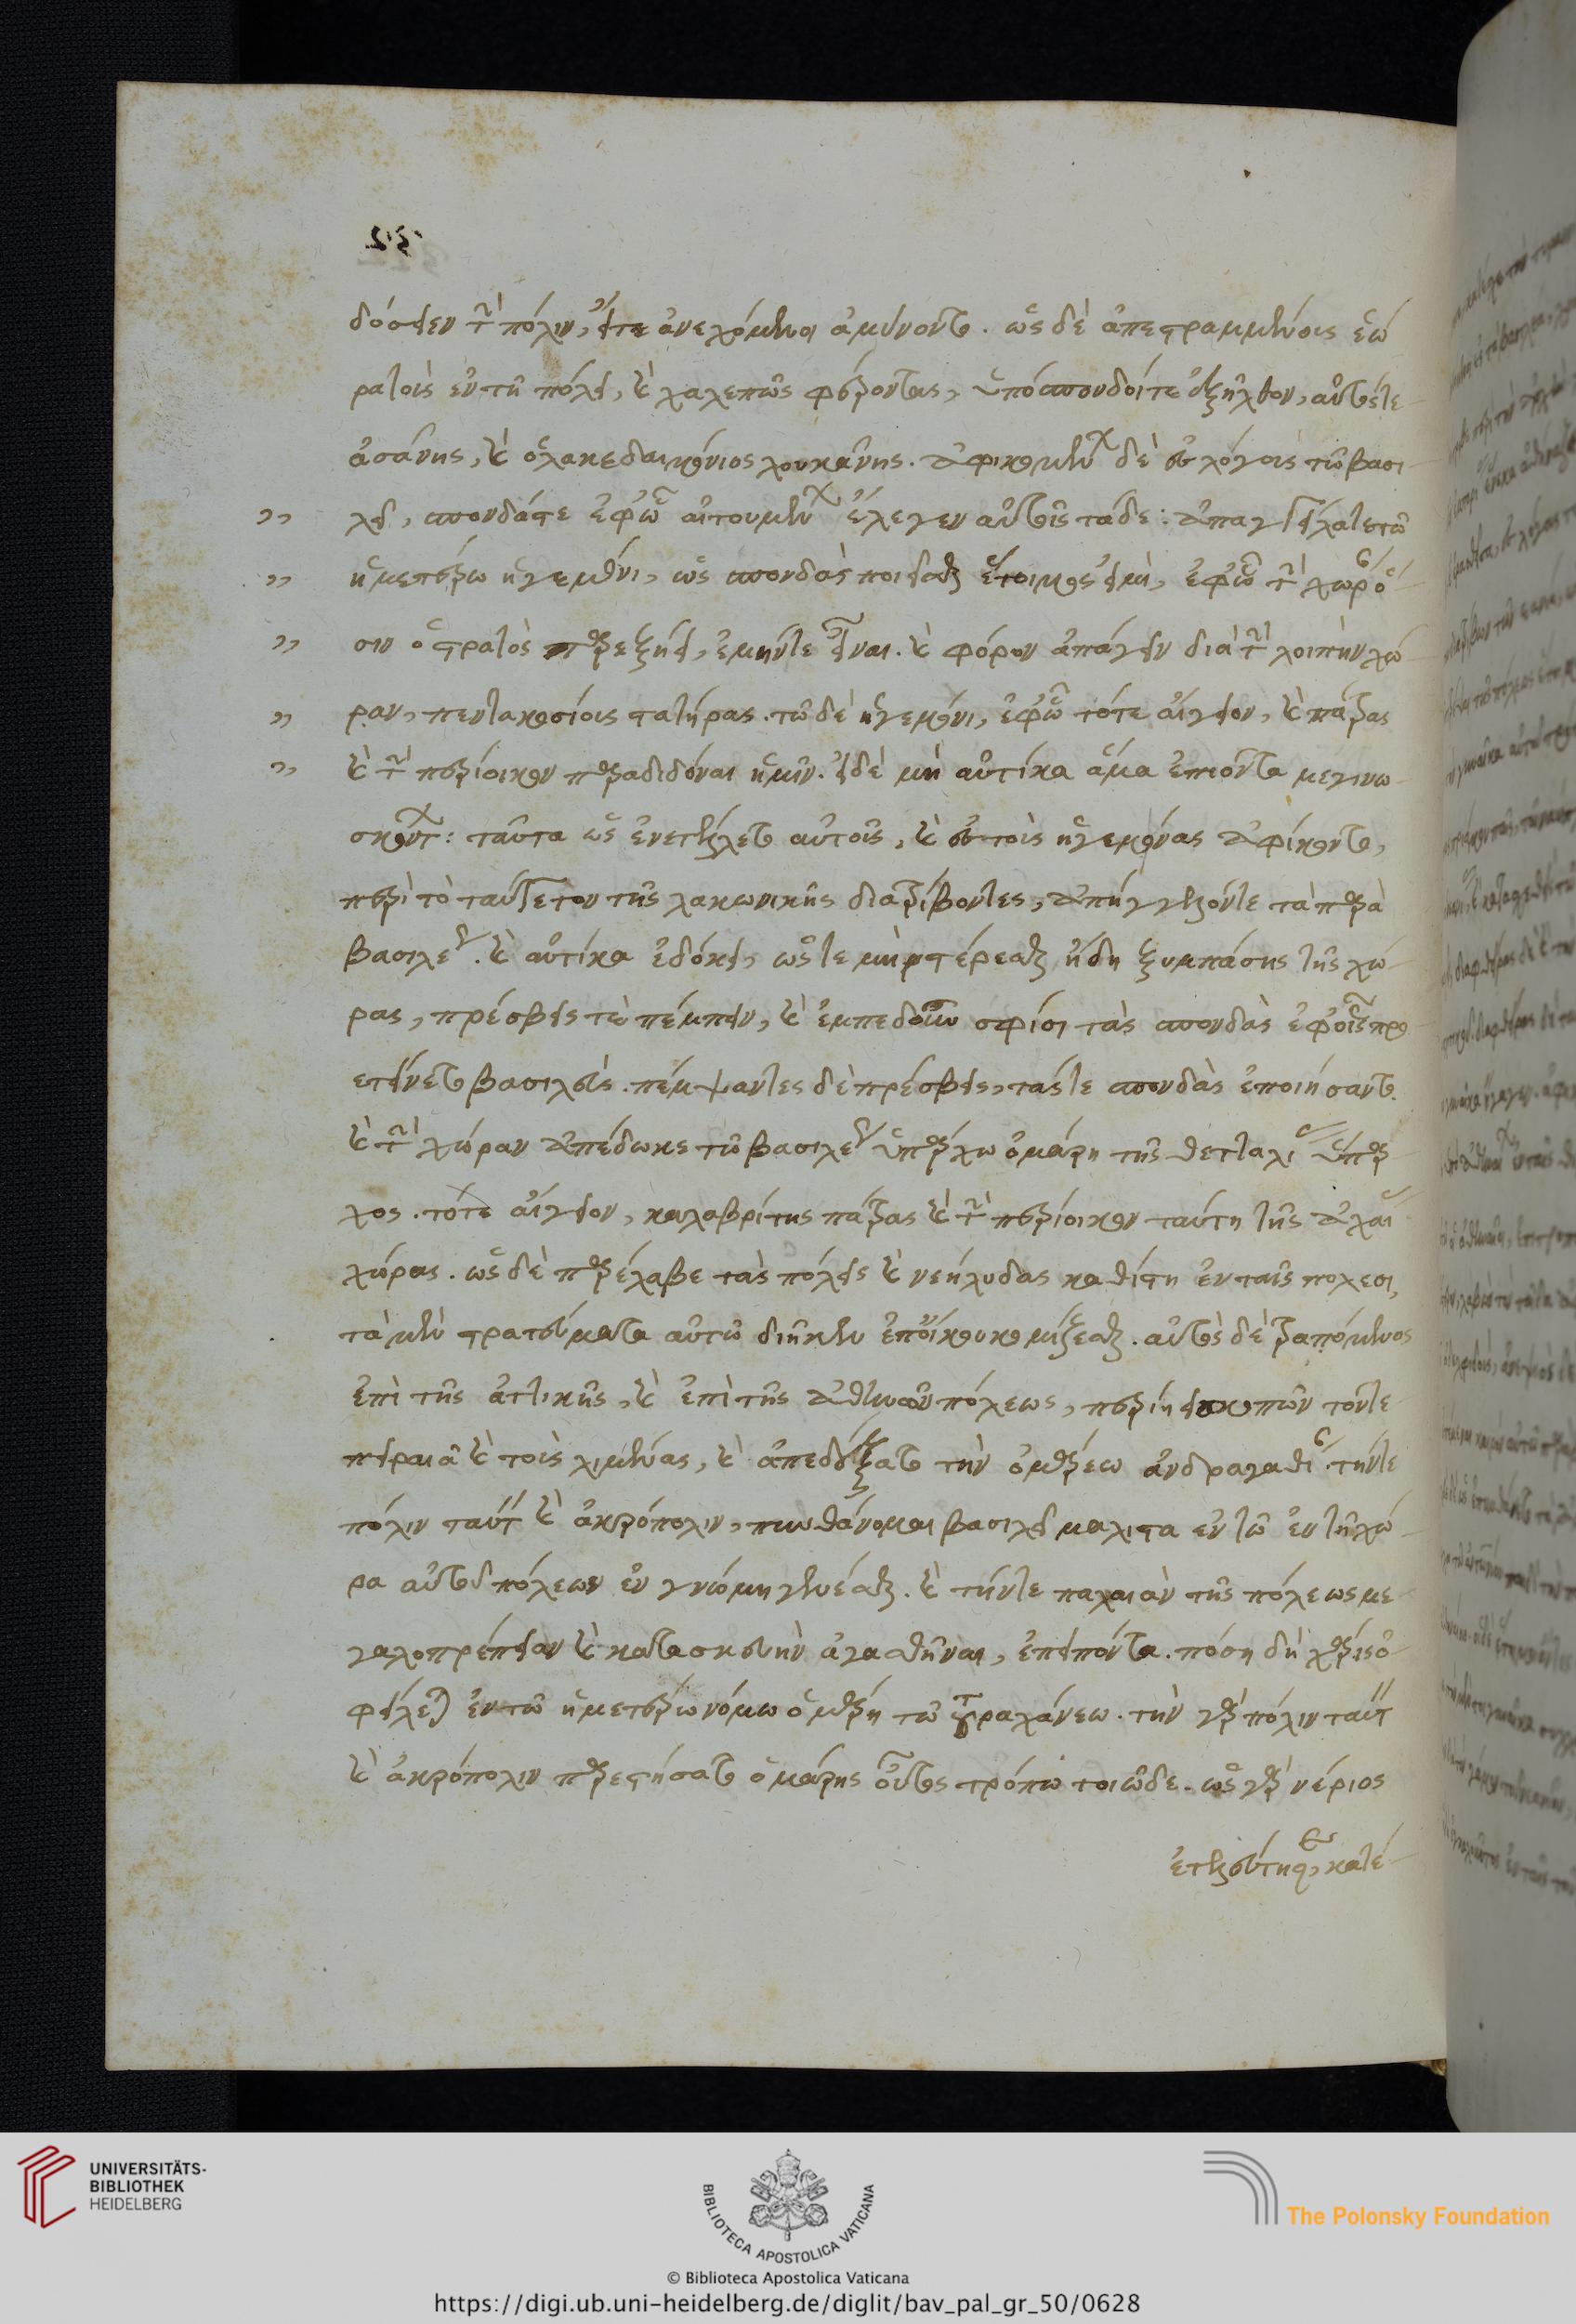 δόσειν τὴν πόλιν, ἔτε ἀνεχόμενοι ἀμύνοντο. ὡς δὲ ἀπεστραμμένους ἑώ
ρα τοὺς ἐν τῇ πόλει, καὶ χαλεπῶς φέροντας, ὑπόσπονδοί τε ἐξῆλθον, αὐτός τε
ἀσάνης, καὶ ὁ λακεδαιμόνιος λουκάνης. ἀφικόμενοι δὲ ἐς λόγους τῷ βασι
λεῖ, σπονδάς τε ἐφ' ᾧ αἰτούμενοι ἔλεγεν αὐτοῖς τάδε: ἀπαγγείλατε τῷ
ἡμετέρῳ ἡγεμόνι, ὡς σπονδὰς ποιεῖσθαι ἕτοιμός εἰμι, ἐφ' ᾧ τὴν χώραν ὅ
σην ὁ στρατὸς ἐπεξῄει, ἐμήν τε εἶναι. καὶ φόρον ἀπάγειν διὰ τὴν λοιπὴν χώ
ραν, πεντακοσίους στατήρας. τῷ δὲ ἡγεμόνι, ἐφ' ᾧ τότε αἴγιον, καὶ πάτρας
καὶ τὴν περίοικον παραδιδόναι ἡμῖν. εἰ δὲ μὴ αὐτίκα ἅμα ἐπιόντα με γινω
σκόντων: ταῦτα ὡς ἐνετείλατο αὐτοῖς, καὶ ἐς τοὺς ἡγεμόνας ἀφίκοντο,
περὶ τὸ ταΰγετον τῆς λακωνικῆς διατρίβοντες, ἀπήγγειλόν τε τὰ παρὰ
βασιλέως. καὶ αὐτίκα ἐδόκει, ὥστε μὴ στέρεσθαι ἤδη ξυμπάσης τῆς χώ
ρας, πρέσβεις τὲ πέμπειν, καὶ ἐμπεδοῦν σφίσι τὰς σπονδὰς ἐφ' οἷς προ
ετείνετο βασιλεύς. πέμψαντες δὲ πρέσβεις, τάς τε σπονδὰς ἐποιήσαντο.
καὶ τὴν χώραν ἀπέδωκε τῷ βασιλέως ὑπάρχῳ ὀμάρῃ τῆς θετταλίας ὕπαρ
χος. τότε αἴγιον, καλαβρίτης πάτρας καὶ τὴν περίοικον ταύτῃ τῆς ἀχαΐας
χώρας. ὡς δὲ παρέλαβε τὰς πόλεις καὶ νεήλυδας καθίστη ἐν ταῖς πόλεσι,
τὰ μὲν στρατεύματα αὐτῷ διῆκεν ἐπ' οἴκου κομίζεσθαι. αὐτὸς δὲ τραπόμενος
ἐπὶ τῆς ἀττικῆς, καὶ ἐπὶ τῆς ἀθηνῶν πόλεως, περιῄει σκοπῶν τόν τε
πειραιᾶ καὶ τοὺς λιμένας, καὶ ἀπεδέξατο τὴν ὀμάρεω ἀνδραγαθίαν. τήν τε
πόλιν ταύτην καὶ ἀκρόπολιν, πυνθάνομαι βασιλεῖ μάλιστα ἐν τῷ ἐν τῇ χώ
ρα αὐτοῦ πόλεων ἐν γνώμῃ γενέσθαι. καὶ τήν τε παλαιὰν τῆς πόλεως με
γαλοπρέπειαν καὶ κατασκευὴν ἀγασθῆναι, ἐπειπόντα. πόση δὴ χάρις ὀ
φείλεται ἐν τῷ ἡμετέρῳ νόμῳ ὀμάρῃ τῷ τουραχάνεω. τὴν γὰρ πόλιν ταύτην
καὶ ἀκρόπολιν παρεστήσατο ὀμάρης οὗτος τρόπῳ τοιῷδε. ὡς γὰρ νέριος
ἐτελεύτησε, κατέ